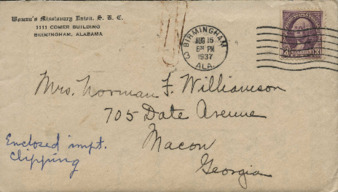 Woman's Missionary Union, S. B. C.
1111 COMER BUILDING
BIRMINGHAM, ALABAMA
BIRMINGHAM
AUG 16
PM
1937
ALA.
Mrs. Norman F. Williamson
705 Date Avenue
Macon
Georgia
Enclosed impt.
Clipping